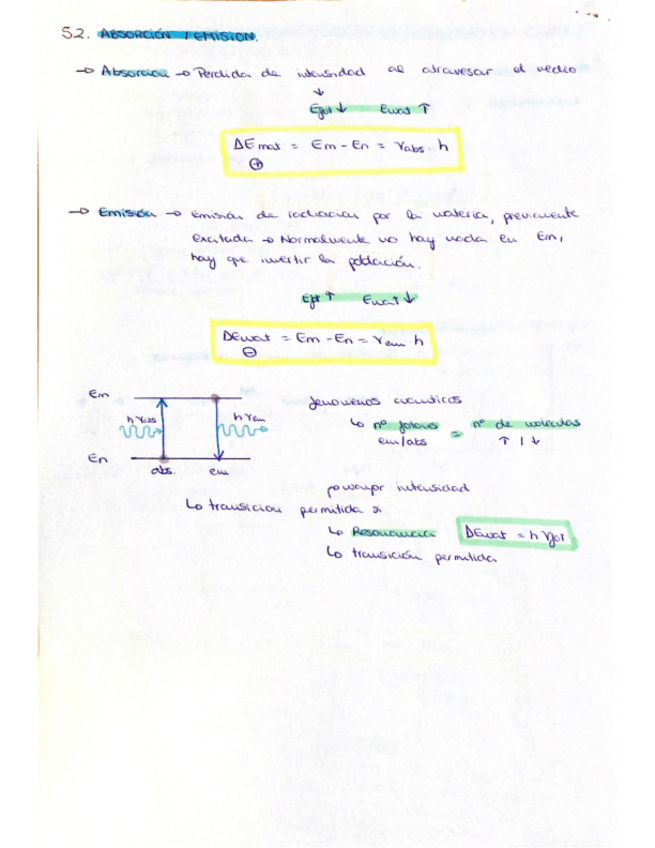 5.2. ABSORCIÓN / EMISION.
→ Absorción → Perdida de intensidad al atravesar el medio
↓
Efot ↓ Emat ↑
ΔEmat = Em - En = γabs · h
⊕
→ Emisión → Emisión de radiación por la materia, previamente
excitada → Normalmente no hay nada en Em,
hay que invertir la población.
Efot ↑ Emat ↓
ΔEmat = Em - En = γem · h
⊖
Em
hγabs hγem
En
abs. em
fenomenos cuanticos
↳ nº fotones = nº de moleculas
em/abs ↑ / ↓
mayor intensidad
↳ transicion permitida
↳ Resonancia ΔEmat = hγfot
↳ transición permitida